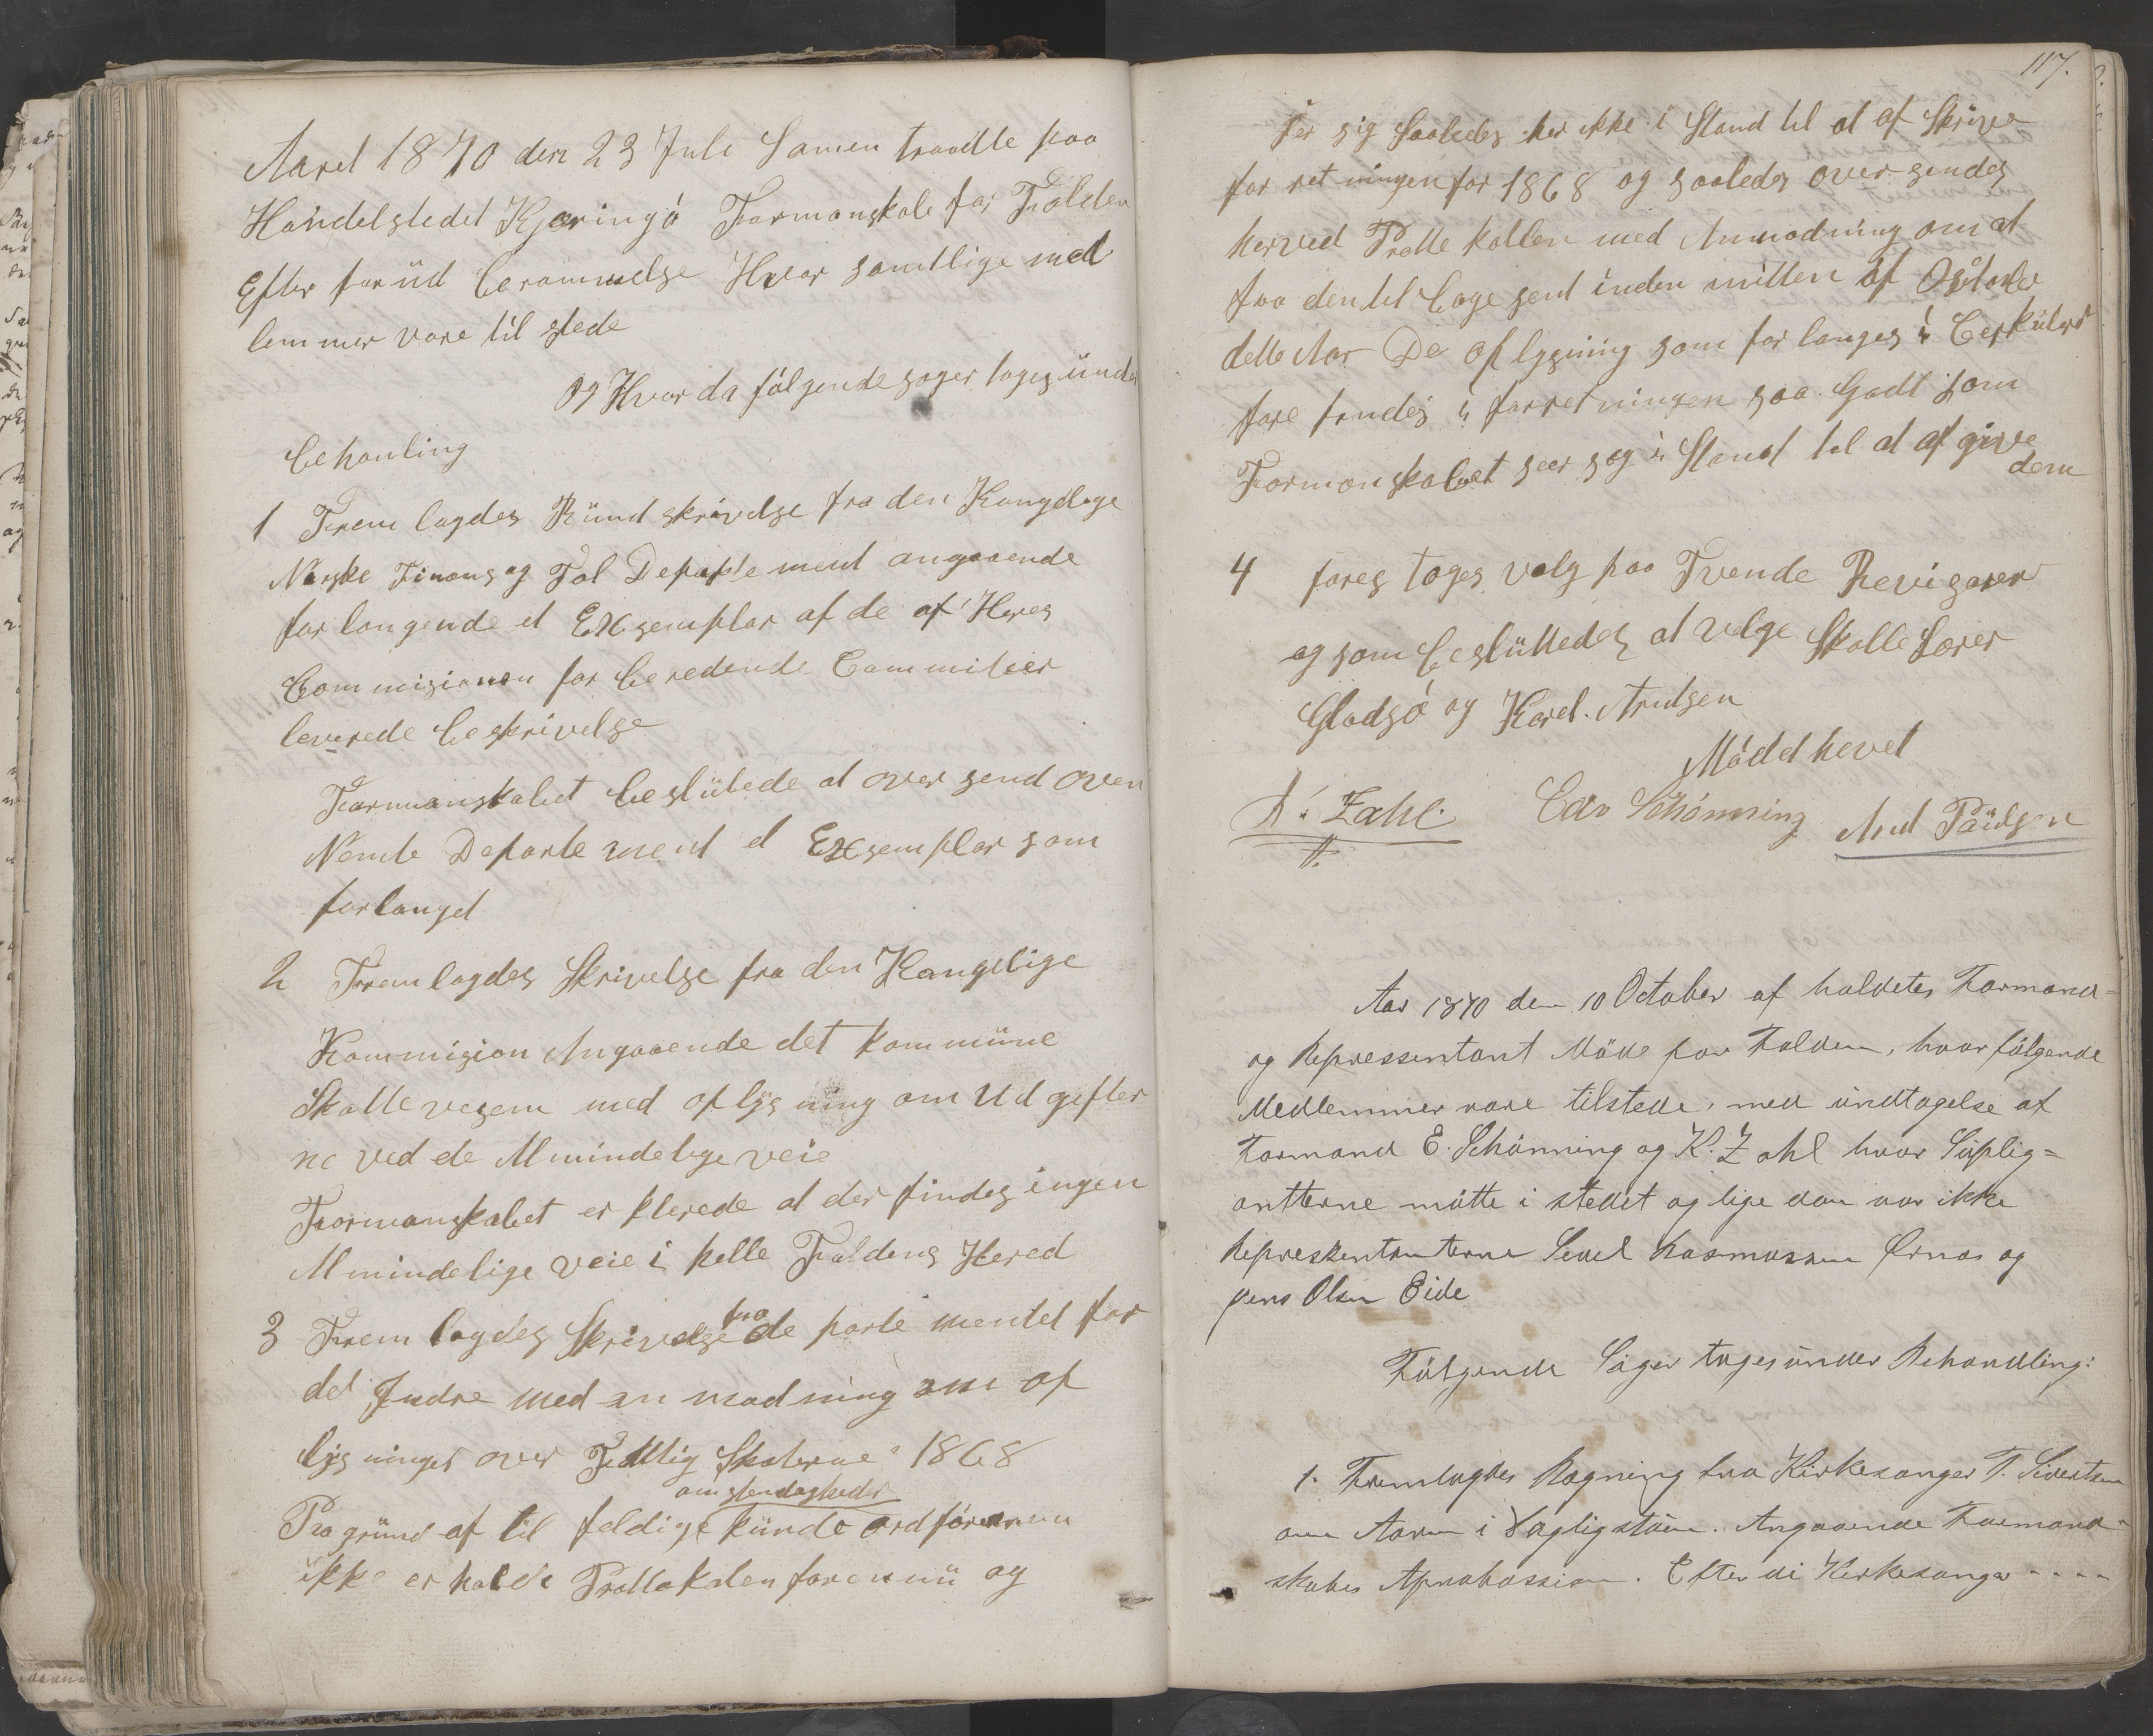 Aaret 1870 den 23 Juli Samen traadte paa
Handelstedet Kjæringö Formanskabe for Folden
Efter forüd berammelse Hvor samtlige med
lemmer vare til stede
og Hvor da fölgende sager toges ünder
behanling
1 Frem lagdes Ründ skrivelse fra den Kongelige
Norske Finans og Tol Departe ment angaaende
for langende et Exsemplar af de af Heres
Commisionen for beredende Commiteer
leverede beskrivelse
Formanskabet beslütede at over send oven
Nemte Departe ment et Exsemplar som
forlanget
2 Frem lagdes Skrivelse fra den Kongelige
Kommision Angaaende det kommüne
Skolle vesem med oplys ning om Ud gifter
ne ved de Almindelige veie
Formanskabet er klerede at der findes ingen
Almindelige veie i helle Foldens Hered
3 Frem lagdes Skrivelse fra de parte mentet for
det Indre med an modning om op
lys ninger over Fattig Skaterne i 1868
omstendigheder
Paa gründ af til feldige künde ordföreren
ikke er holde Protokolen for en nü og
117.
ser sig saaledes her ikke i Stand til at af Skrive
for ret ningen for 1868 og saaledes over sendes
herved Protte kollen med Anmodning om at
faa den til bage sent inden mitten af Oktober
dette Aar De oplysning som for langes i Cerkülær
fore findes i forretningen saa Godt som
Formanskabet seer seg i Stand til at af give
dem
4 fores toges valg paa Tvende Revisorer
og som beslüttedes at velge Skolle Lærer
Gladsö og Karel. Arntsen
Mödet hevet
K. Zahl. Edv Schönning And Paülsen
Aar 1870 den 10 October af holdetes Formand=
og Repressentant Möde for Folden, hvor fölgende
Medlemmer vare tilstede, med ündtagelse af
Formand E. Schönning og K. Zahl hvor Süplig=
antterne mötte i stedet og lige dan var ikke
Repressentanterne Sevel Rasmussen Ørnes og
Jens Olsen Eide
Fölgende Sager toges ünder Behandling:
1. Fremlagdes Regning fra Kirkesanger T. Sivertsen
om Aaren i Vagligstüen. Angaaende Formand=
skabes Aprobassion. Efter di Kirkesanger - - - -